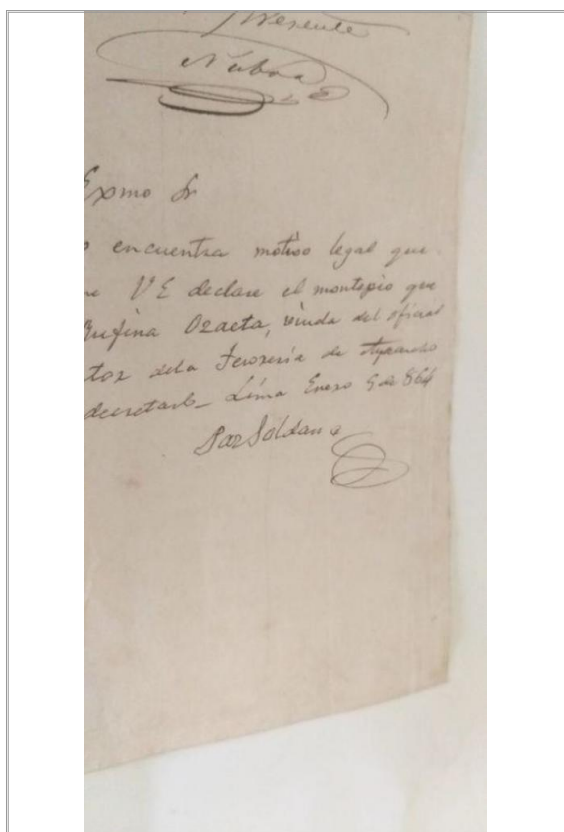 Presente
Exmo Sr
encuentra motivo legal que
VE declare el montepio que
Rufina Ozaeta, viuda del oficial
tor dela Tesoreria de Ayacucho
decretarlo_ Lima Enero 5 de 864
Paz Soldan